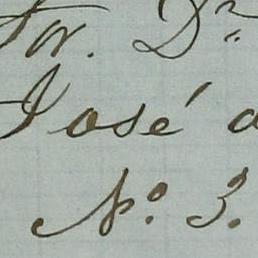 Sor. Dn
José a
No. 3.